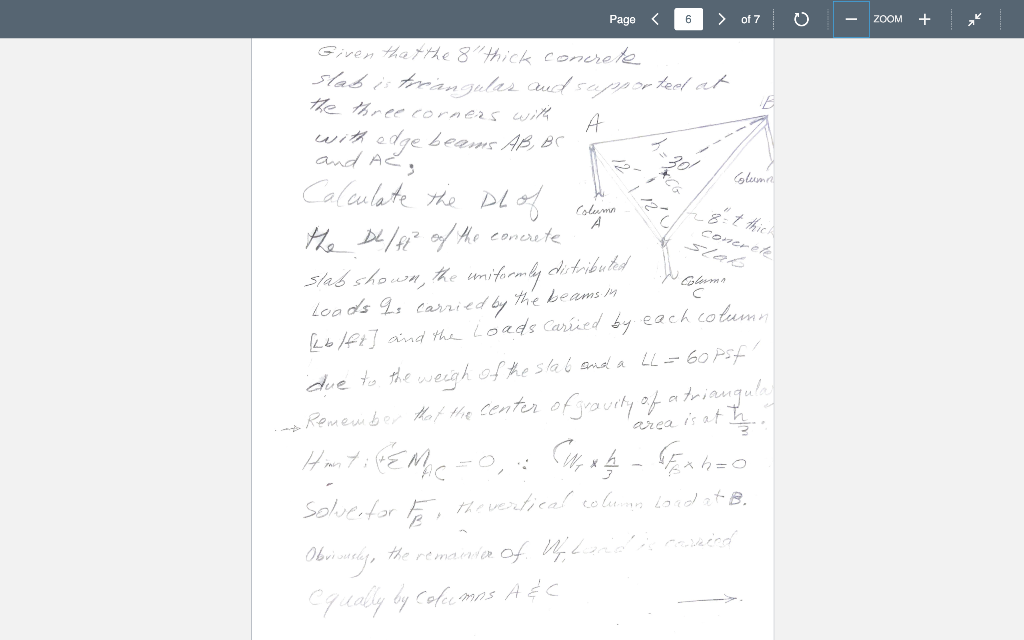 Page 6 of 7 ZOOM
Given that the 8" thick concrete
slab is triangular and supported at
the three corners with
with edge beams AB, BC
and AC;
Calculate the DL of
the DL/ft² of the concrete
slab shown, the uniformly distributed
Loads qs carried by the beams in
[Lb/ft] and the Loads carried by each column
due to the weigh of the slab and a LL = 60 PSF
→ Remember that the center of gravity of a triangular
area is at h/3.
Hint: (+ΣM_AC = 0, ∴ W_T × h/3 − F_B × h = 0
Solve for F_B, the vertical column Load at B.
Obviously, the remainder of W_T Load is carried
equally by columns A & C
A
B
12-
30'
CG
12-
C
Column
A
Column
Column
C
8"=t thick
concrete
slab